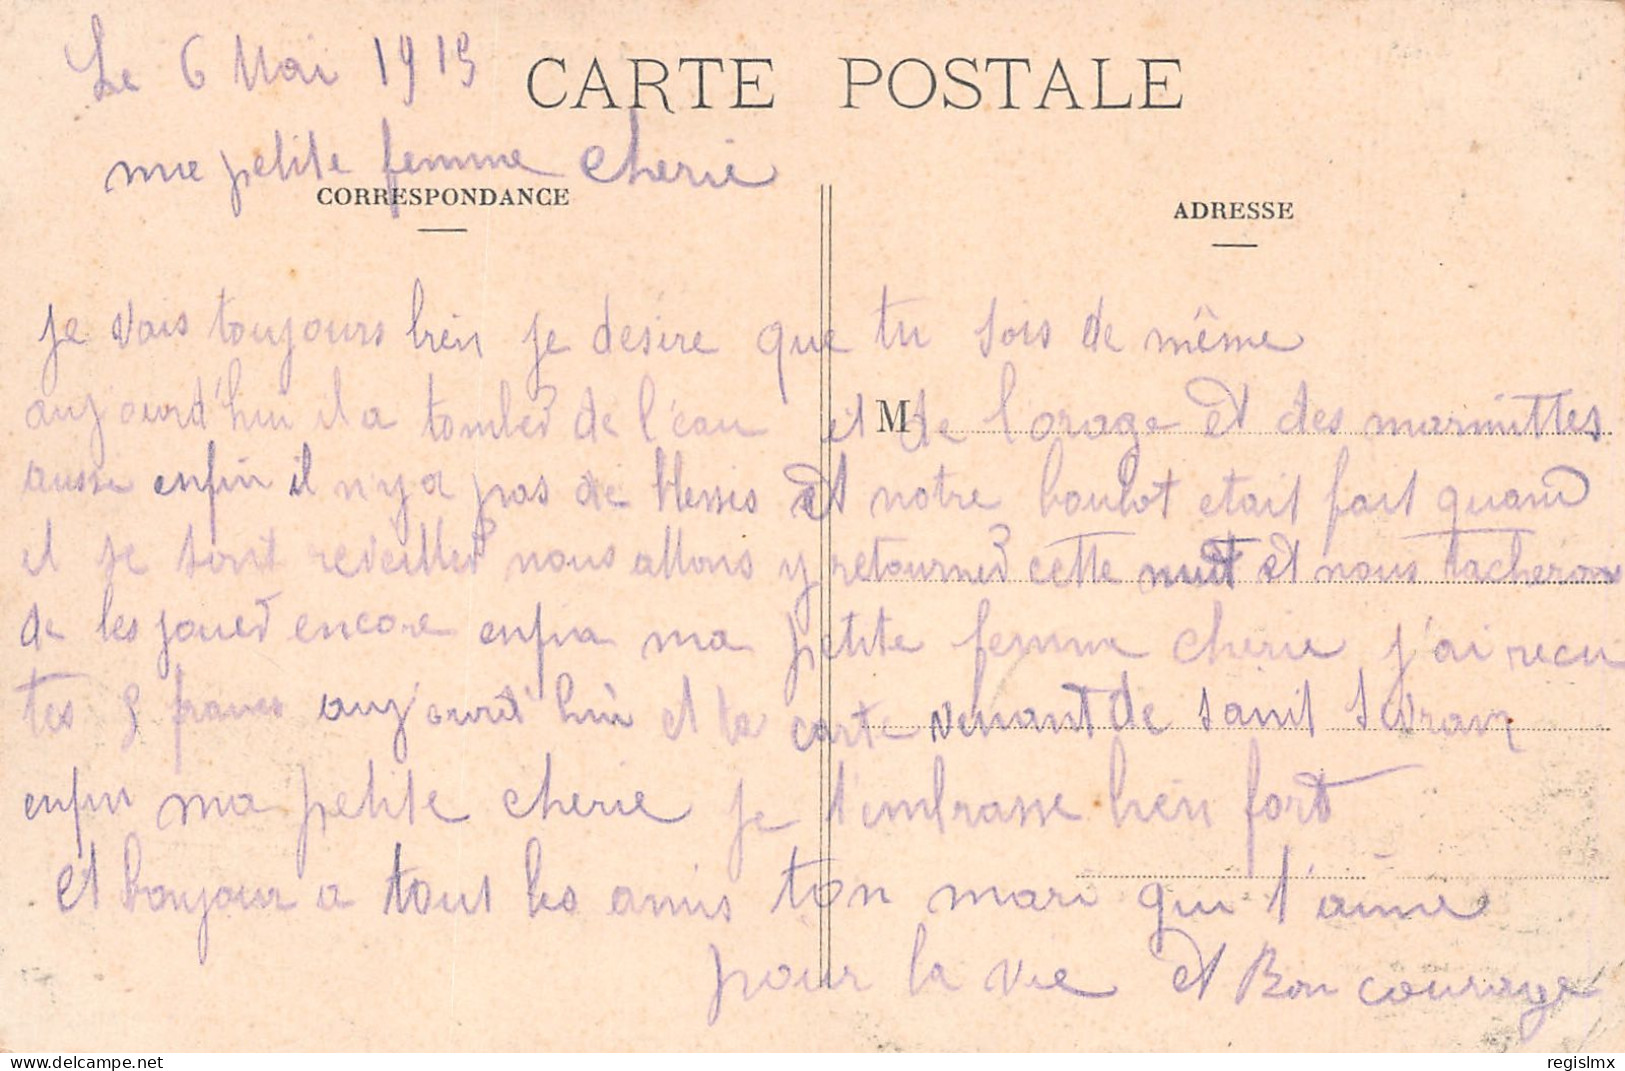 Le 6 Mai 1915
CARTE POSTALE
ma petite femme cherie
CORRESPONDANCE
ADRESSE
je vais toujours bien je desire que tu sois de même
aujourd'hui il a tomber de l'eau et de l'orage et des marmittes
M
aussi enfin il n'y a pas de blessés et notre boulot etait fait quand
il se sont reveiller nous allons y retourner cette nuit et nous tacherons
de les jouer encore enfin ma petite femme cherie j'ai recu
tes 5 francs aujourd'hui et ta carte venant de saint
enfin ma petite cherie je t'embrasse bien fort
et bonjour a tous les amis ton mari qui t'aime
pour la vie et Bon courage
regislmx